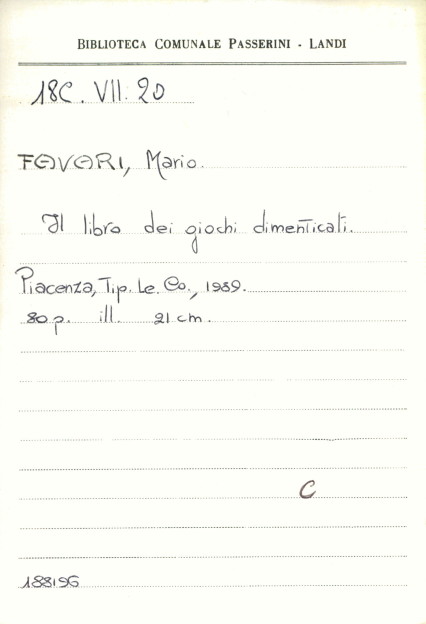 BIBLIOTECA COMUNALE PASSERINI - LANDI
18C. VII. 20
FAVARI, Mario.
Il libro dei giochi dimenticati.
Piacenza, Tip. Le. Co., 1989.
80 p. ill. 21 cm.
C
188196